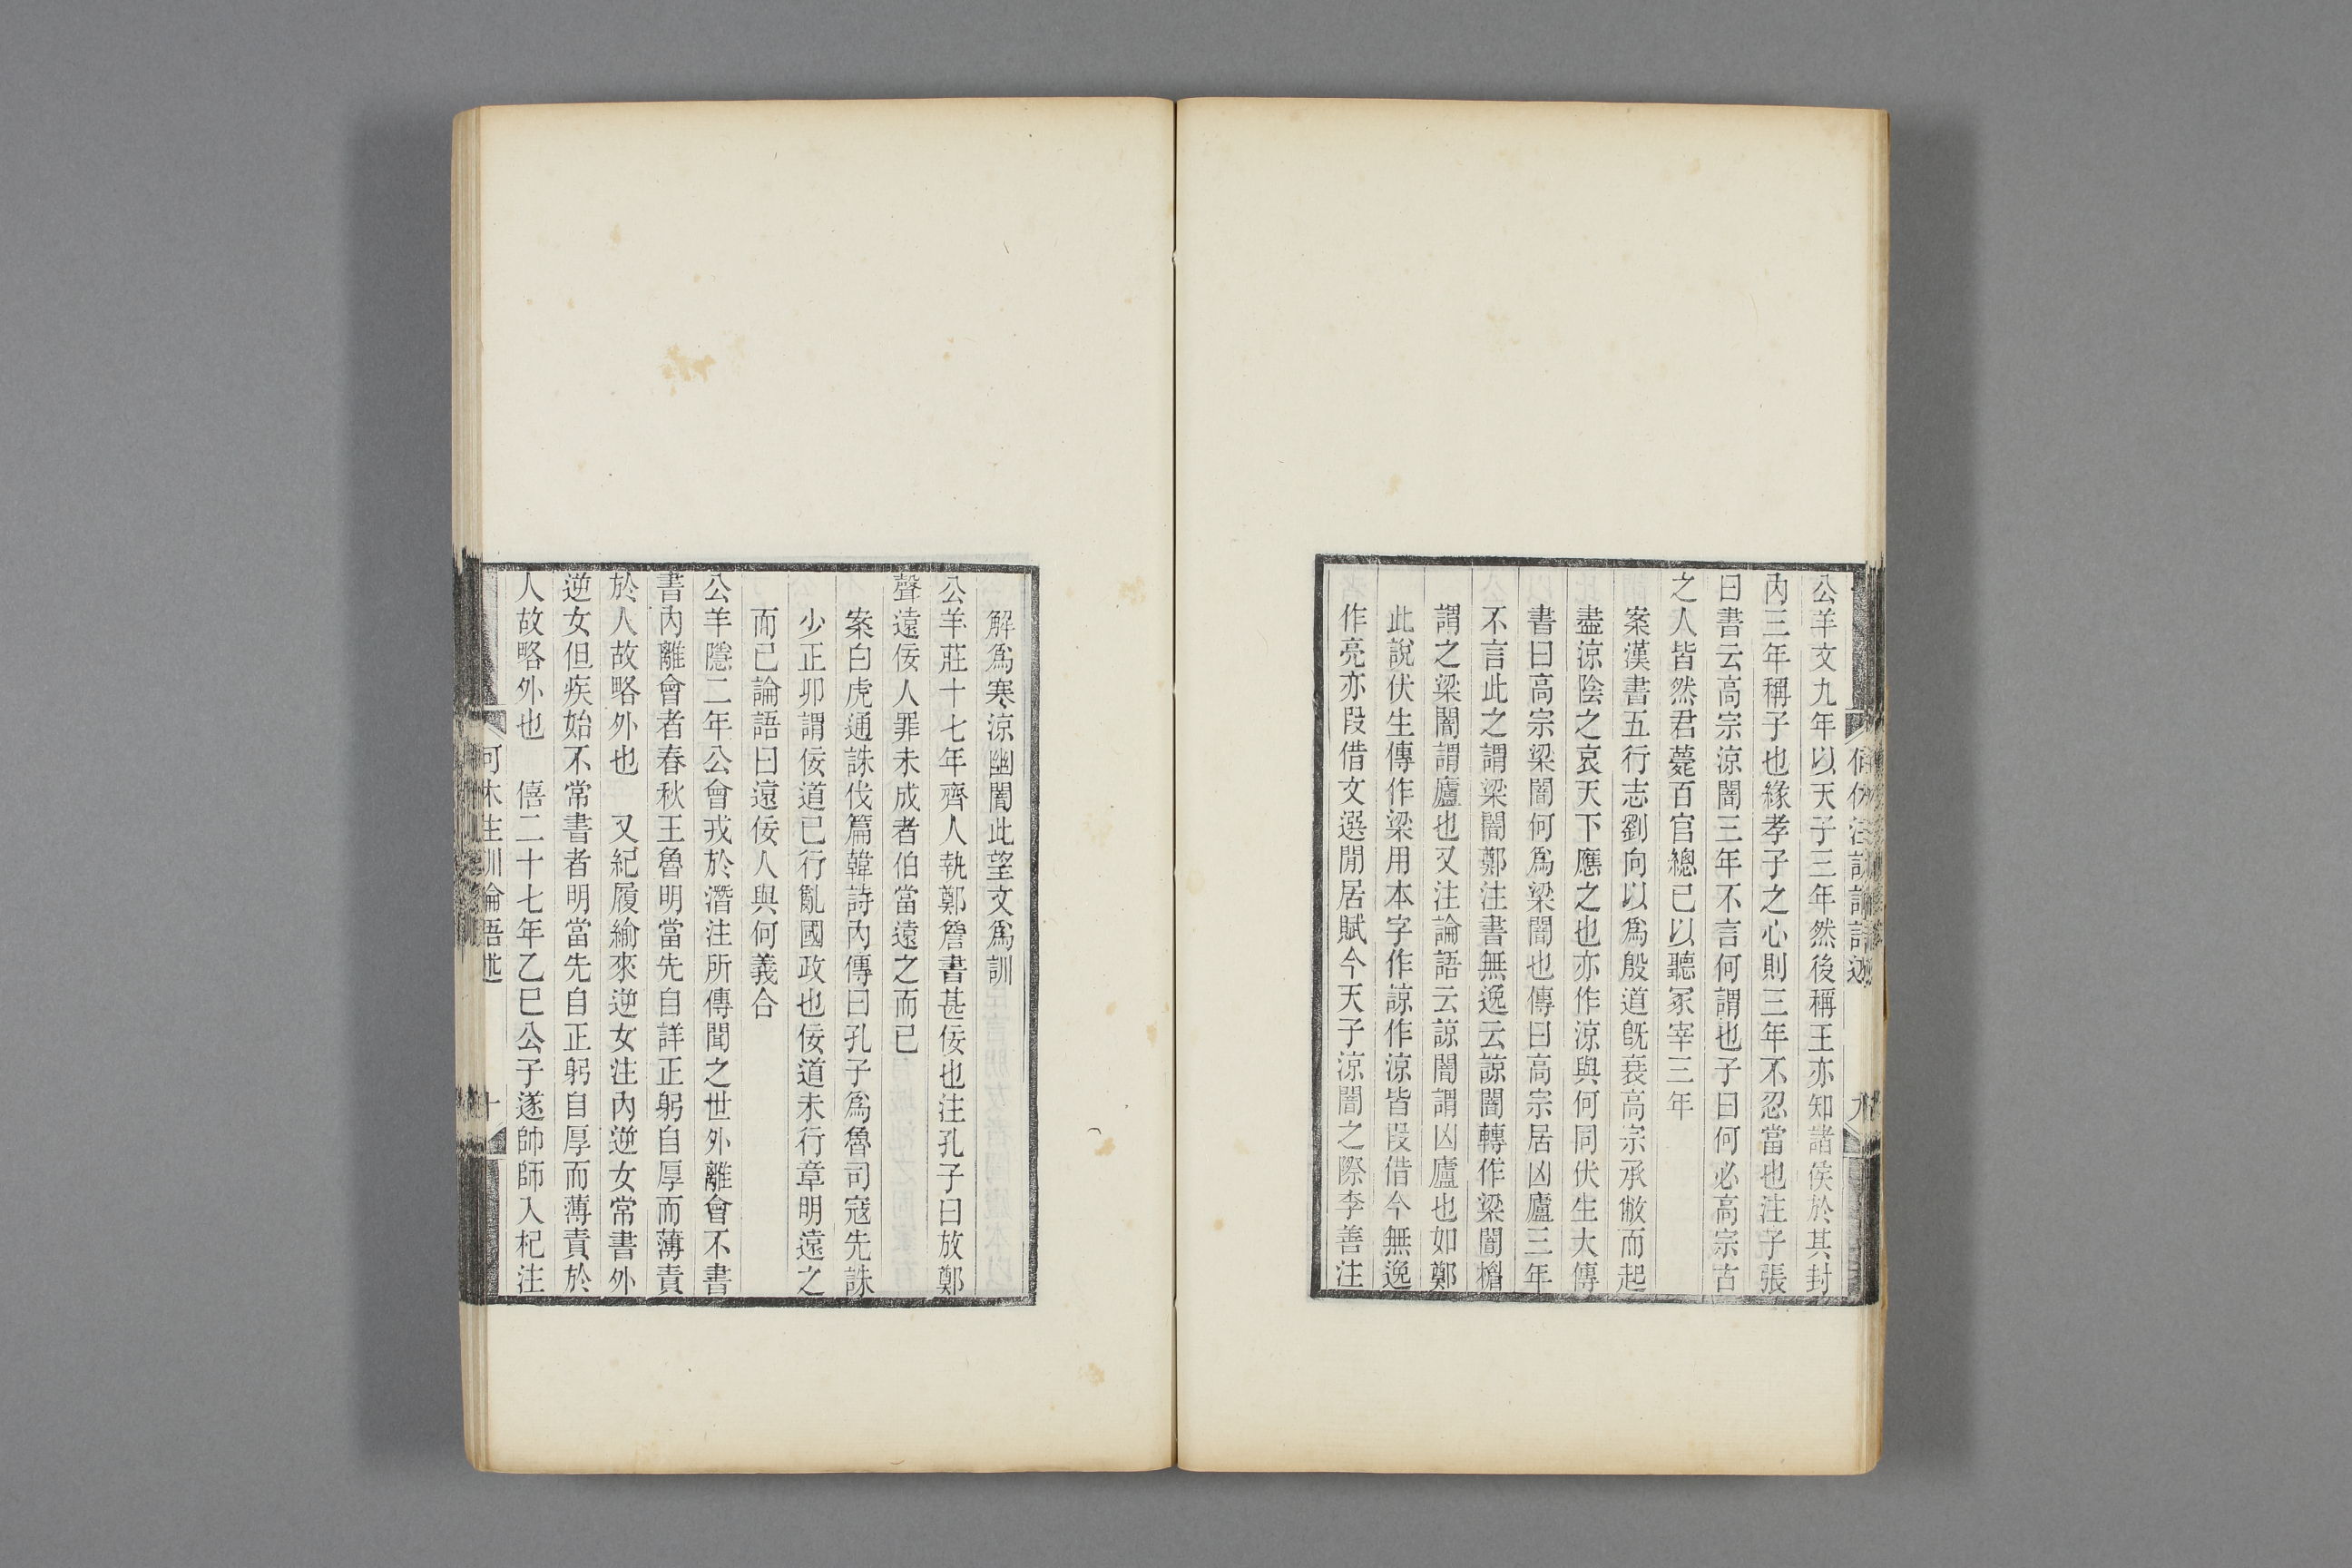 公羊文九年以天子三年然後稱王亦知諸侯於其封
內三年稱子也緣孝子之心則三年不忍當也注子張
曰書云高宗涼闇三年不言何謂也子曰何必高宗古
之人皆然君薨百官總己以聽冢宰三年
案漢書五行志劉向以爲殷道既衰高宗承敝而起
盡涼陰之哀天下應之也亦作涼與何同伏生大傳
書曰高宗梁闇何爲梁闇也傳曰高宗居凶廬三年
不言此之謂梁闇鄭注書無逸云諒闇轉作梁闇楣
謂之梁闇謂廬也又注論語云諒闇謂凶廬也如鄭
此說伏生傳作梁用本字作諒作涼皆叚借今無逸
作亮亦叚借文選閒居賦今天子涼闇之際李善注
解爲寒涼幽闇此望文爲訓
公羊莊十七年齊人執鄭詹書甚佞也注孔子曰放鄭
聲遠佞人罪未成者伯當遠之而已
案白虎通誅伐篇韓詩內傳曰孔子爲魯司寇先誅
少正卯謂佞道已行亂國政也佞道未行章明遠之
而已論語曰遠佞人與何義合
公羊隱二年公會戎於潛注所傳聞之世外離會不書
書內離會者春秋王魯明當先自詳正躬自厚而薄責
於人故略外也　又紀履緰來逆女注內逆女常書外
逆女但疾始不常書者明當先自正躬自厚而薄責於
人故略外也　僖二十七年乙巳公子遂帥師入杞注
何休注訓論語述
十